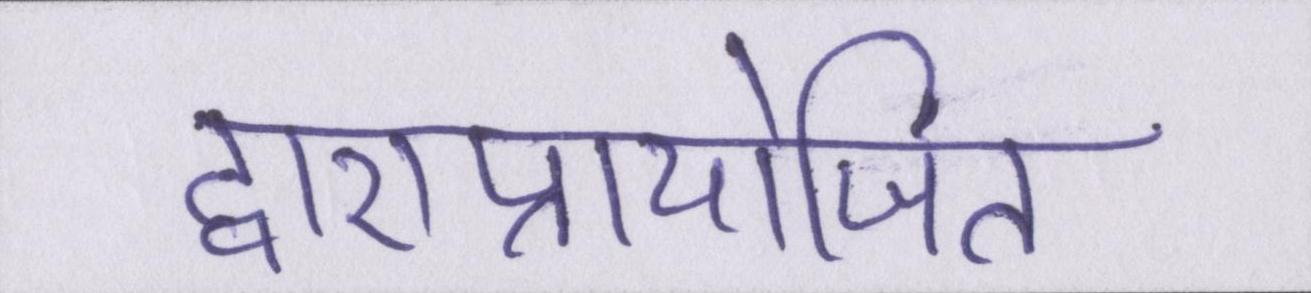 द्वाराप्रायोजित